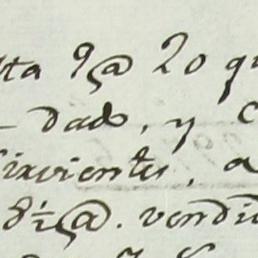 lta 9@ 20 qu
dado, y c
Sirvientes, a
8½@. vendi